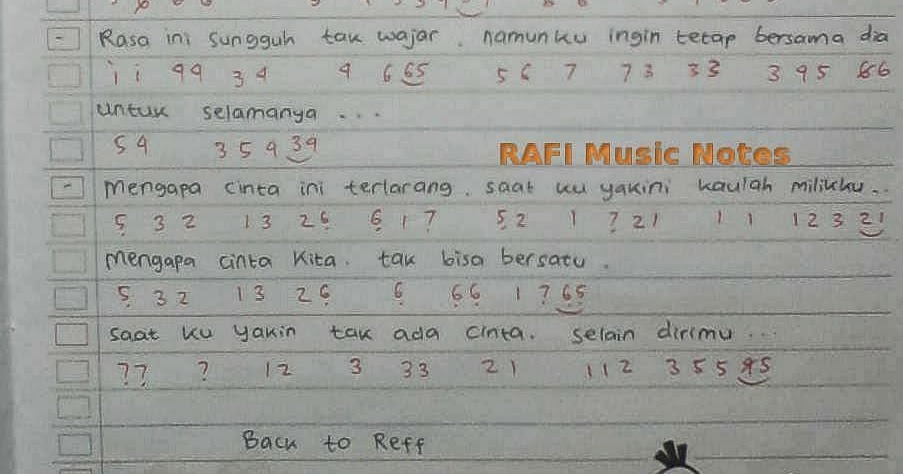 - Rasa ini sungguh tak wajar. namunku ingin tetap bersama dia
i i 44 34 4 6 65 56 7 73 33 3 45 66
untuk selamanya ...
54 354 34
RAFI Music Notes
- Mengapa cinta ini terlarang. saat ku yakini kaulah milikku..
5 3 2 13 26 6 1 7 52 1 7 21 1 1 1 2 3 21
Mengapa cinta kita. tak bisa bersatu.
5 32 13 26 6 66 1 7 65
saat ku yakin tak ada cinta. selain dirimu ...
77 7 12 3 33 21 112 3 5 5 45
Back to Reff